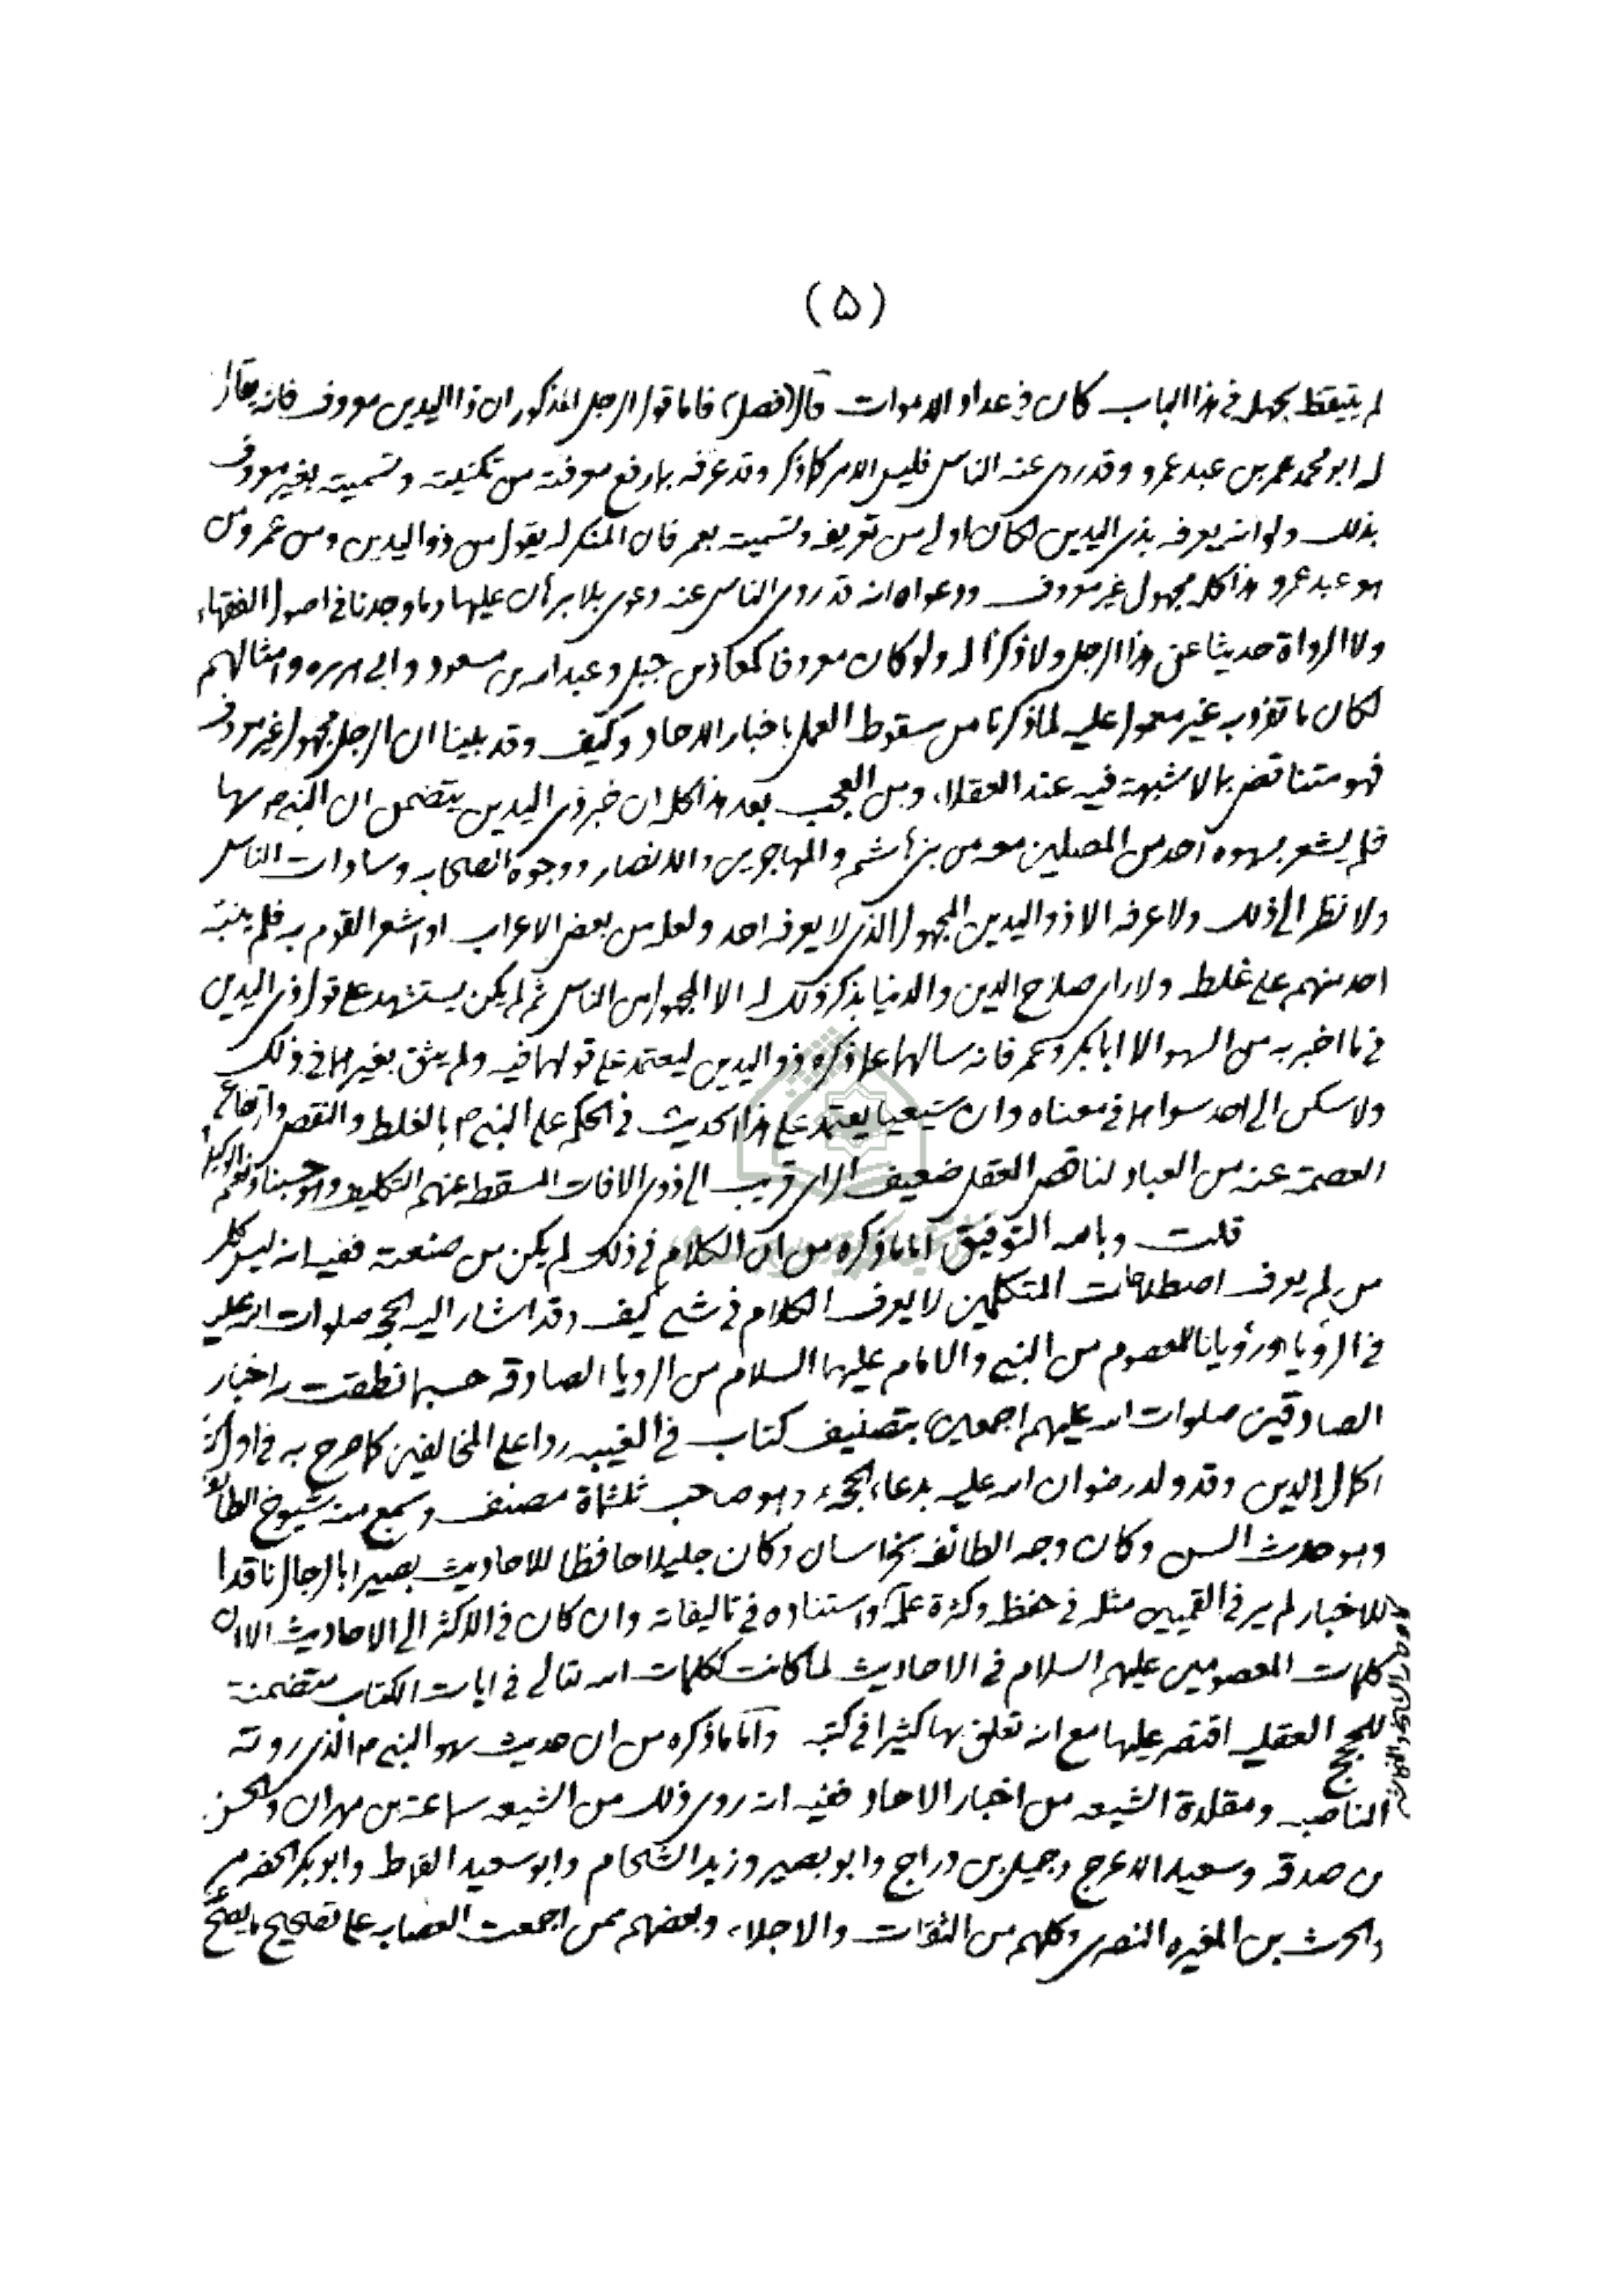 (۵)
لم يتيقظ بجهله في هذا الباب كان في عداد الاموات قال (فصل) فاما قول الرجل المذكور ان ذا اليدين معروف فانه يقال
له ابو محمد عمير بن عبد عمرو وقد روى عنه الناس فليس الامر كما ذكر وقد عرفه بما رفع معرفته من تكنيته وتسميته بغير معروف
بذلك ولو انه يعرفه بذي اليدين لكان اولى من تعريفه وتسميته بعمير فان المنكر له يقول من ذو اليدين ومن عمير ومن
هو عبد عمرو هذا كله مجهول غير معروف ودعواه انه قد روى الناس عنه دعوى بلا برهان عليها وما وجدنا في اصول الفقهاء
ولا الرواة حديثا عن هذا الرجل ولا ذكرا له ولو كان معروفا كمعاذ بن جبل وعبد الله بن مسعود وابي هريره وامثالهم
لكان ما تفرد به غير معمول عليه لما ذكرنا من سقوط العمل باخبار الاحاد وكيف وقد بينا ان الرجل مجهول غير معروف
فهو متناقض بما لا شبهة فيه عند العقلاء ومن العجب بعد هذا كله ان خبر ذي اليدين يتضمن ان النبي م سها
فلم يشعر بسهوه احد من المصلين معه من بني هاشم والمهاجرين والانصار ووجوه الصحابه وسادات الناس
ولا نظر الى ذلك ولا عرفه الا ذو اليدين المجهول الذي لا يعرفه احد ولعله من بعض الاعراب او اشعر القوم به فلم ينبته
احد منهم على غلطه ولا راى صلاح الدين والدنيا بذكر ذلك له الا المجهول من الناس ثم لم يكن يستشهد على قول ذي اليدين
في ما اخبر به من السهو الا ابا بكر وعمر فانه سالهما عما ذكره ذو اليدين ليعتمد على قولهما فيه ولم يثق بغيرهما في ذلك
ولا سكن الى احد سواهما في معناه وان شيعيا يعتمد على هذا الحديث في الحكم على النبي م بالغلط والنقص وارتفاع
العصمة عنه من العباد لناقص العقل ضعيف الراى قريب الى ذوي الافات المسقطة عنهم التكليف وهو حسبنا ونعم الوكيل
قلت وبالله التوفيق اما ما ذكره من ان الكلام في ذلك لم يكن من صنعته ففيه انه ليس كل
من لم يعرف اصطلاحات المتكلمين لا يعرف الكلام في شيء كيف وقد اشار اليه الحجه صلوات الله عليه
في الرؤيا ورؤيانا للمعصوم من النبي والامام عليهما السلام من الرويا الصادقه حسبما نطقت به اخبار
الصادقين صلوات الله عليهم اجمعين بتصنيف كتاب في الغيبه ردا على المخالفين كما صرح به في اول
اكمال الدين وقد ولد رضوان الله عليه بدعاء الحجه وهو صاحب ثلثمائة مصنف وسمع منه شيوخ الطائفه
وهو حدث السن وكان وجه الطائفه بخراسان وكان جليلا حافظا للاحاديث بصيرا بالرجال ناقدا
للاخبار لم ير في القميين مثله في حفظه وكثرة علمه واستناده في تاليفاته وان كان في الاكثر الى الاحاديث الا ان
كلمات المعصومين عليهم السلام في الاحاديث لما كانت ككلمات الله تعالى في ايات الكتاب متضمنة
للحجج العقليه اقتصر عليها مع انه تعلق بها كثيرا في كتبه واما ما ذكره من ان حديث سهو النبي م الذي روته
الناصبه ومقلدة الشيعه من اخبار الاحاد ففيه انه روى ذلك من الشيعه سماعة بن مهران والحسن
بن صدقه وسعيد الاعرج وجميل بن دراج وابو بصير وزيد الشحام وابو سعيد القماط وابو بكر الحضرمي
والحرث بن المغيره النصرى وكلهم من الثقات والاجلاء وبعضهم ممن اجمعت العصابه على تصحيح ما يصح